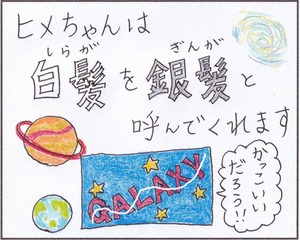 ヒメちゃんは
しらが ぎんが
白髪を銀髪と
呼んでくれます
GALAXY
かっこいい
だろう!!